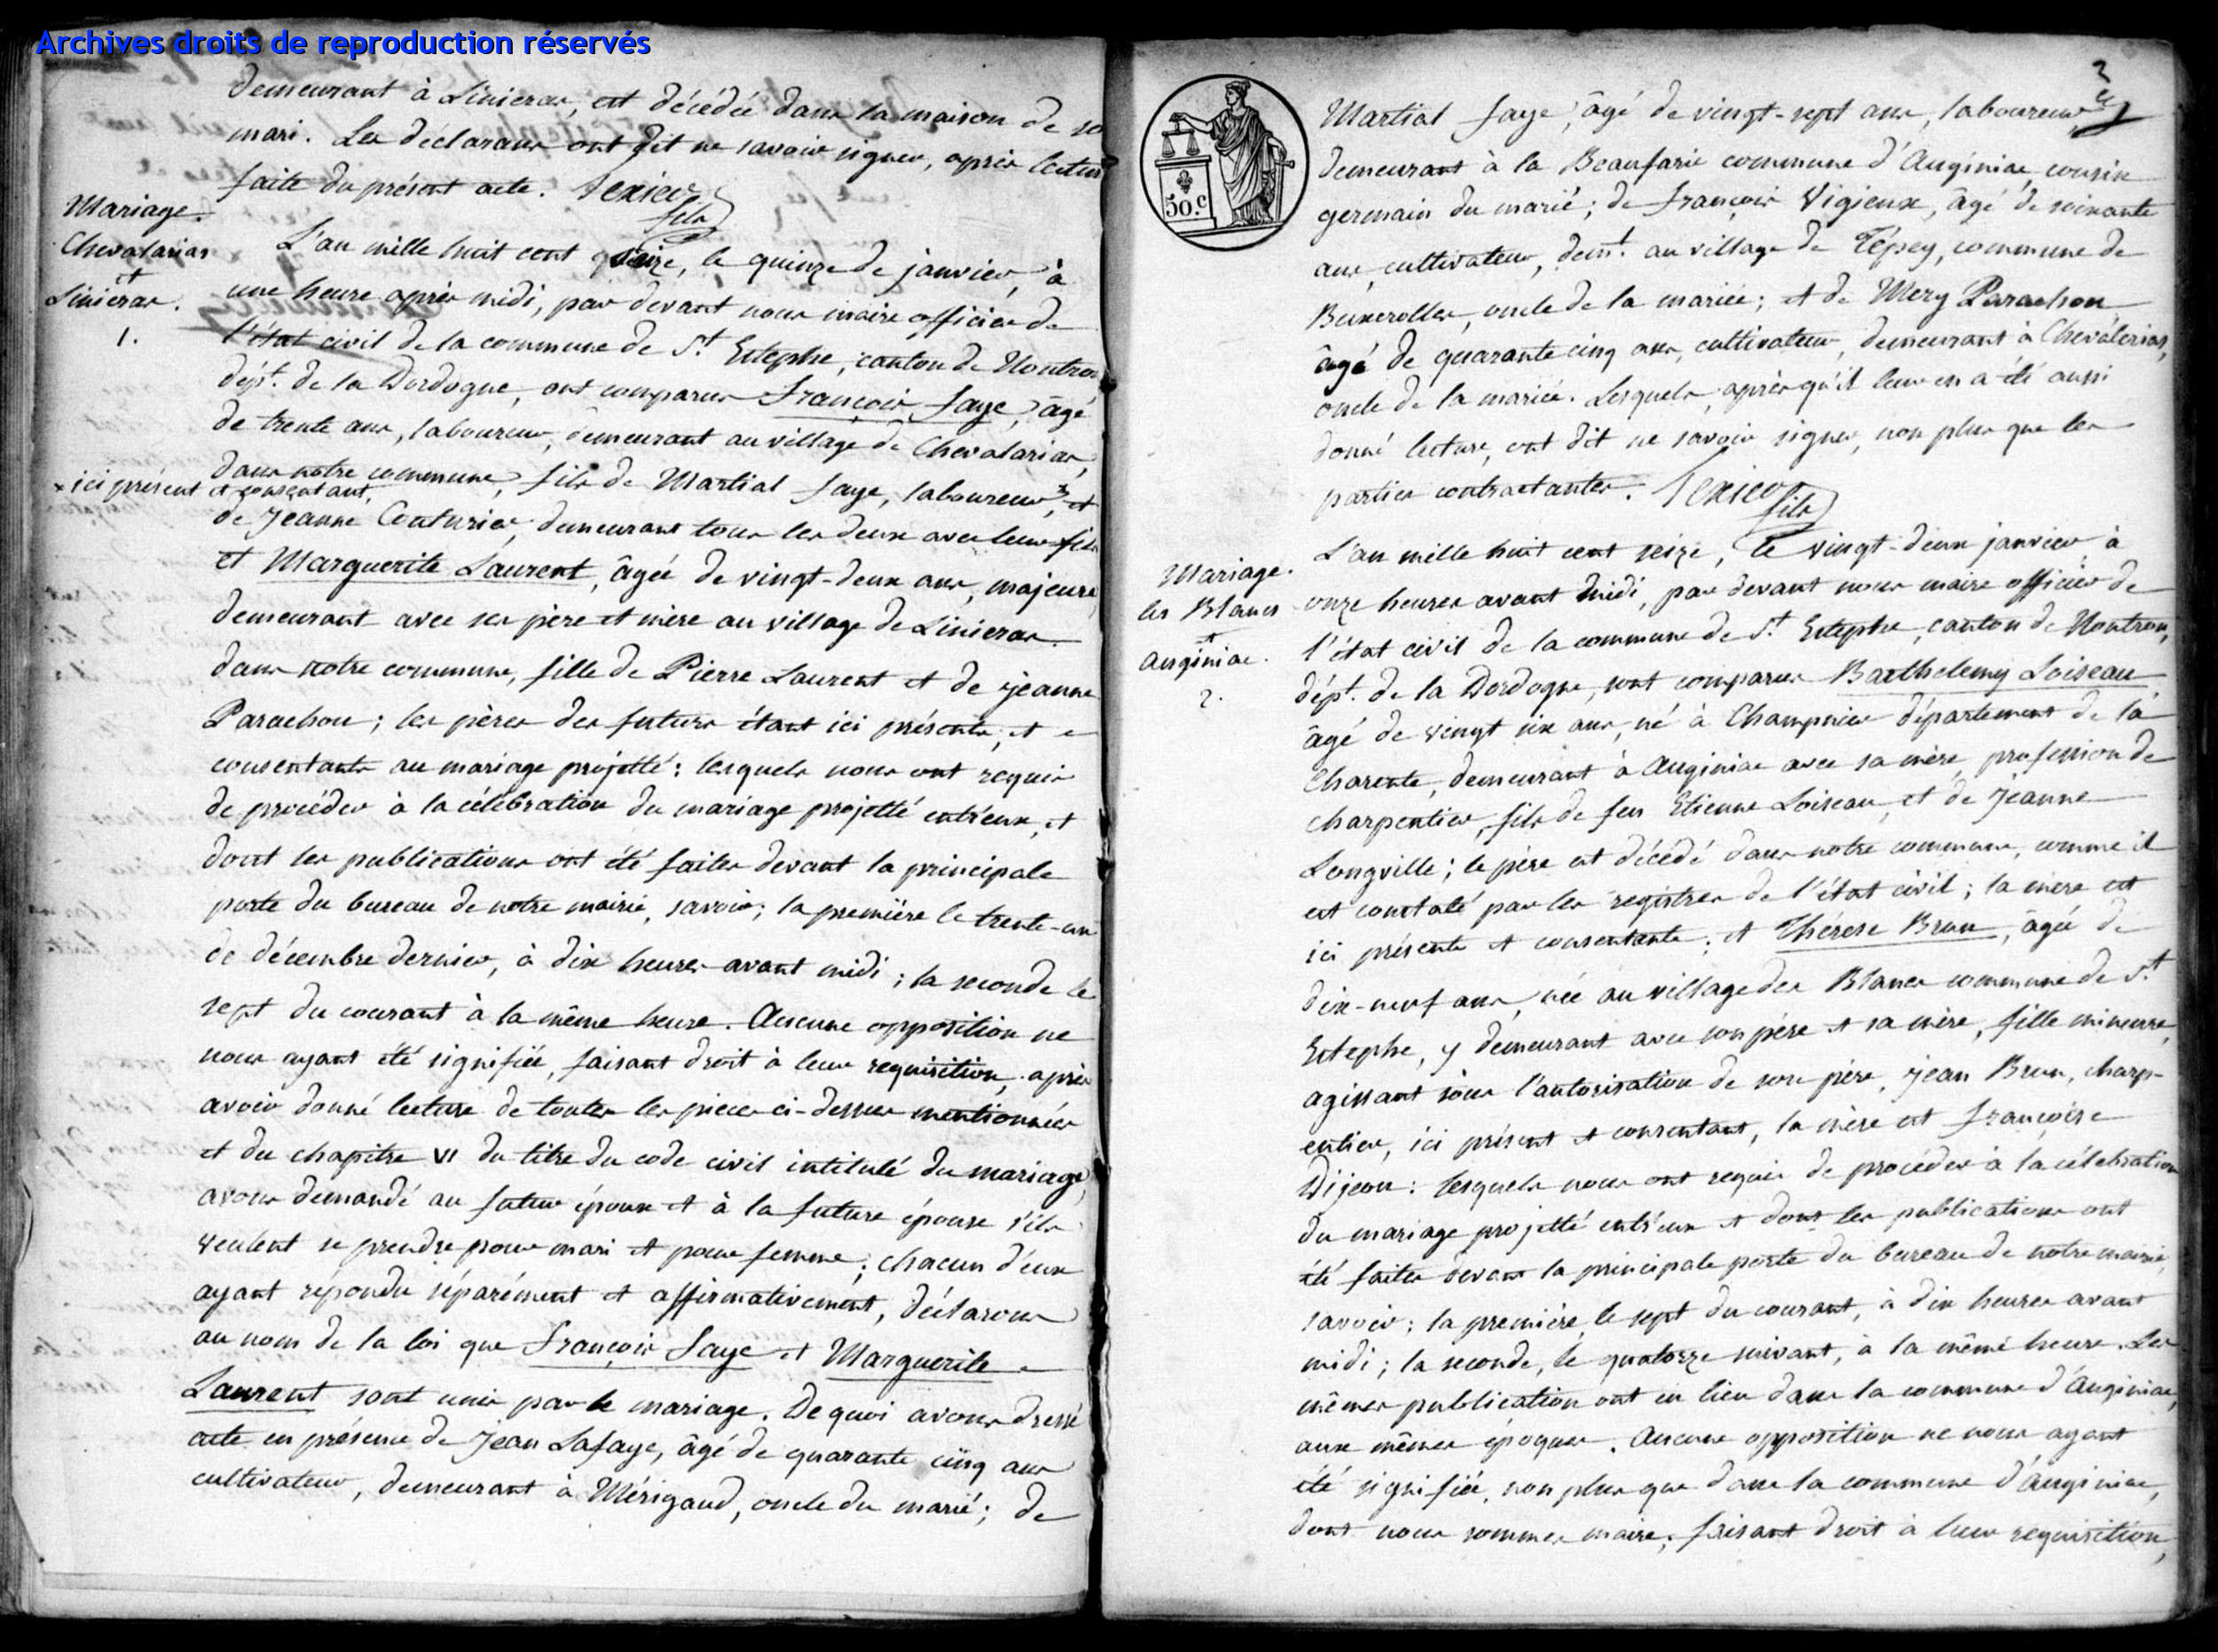 Archives droits de reproduction réservés
demeurant à Linieras, est décédée dans la maison de so
mari. Les déclarans ont dit ne savoir signer, après lectur
faite du présent acte. Texier
fils
Mariage.
Chevalarias
et
Linieras.
1.
L'an mille huit cent seize, le quinze de janvier, à
une heure après midi, par devant nous maire officier de
l'état civil de la commune de St. Estephe, canton de Nontron
dépt. de la Dordogne, ont comparus François Faye, âgé
de trente ans, laboureur, demeurant au village de Chevalarias,
dans notre commune, fils de Martial Faye, laboureur, et
× ici présent et consentant,
de Jeanne Couturier, demeurans tous les deux avec leur fils
et Marguerite Laurent, âgée de vingt-deux ans, majeure,
demeurant avec ses père et mère au village de Linieras
dans notre commune, fille de Pierre Laurent et de jeanne
Parachou; les pères des futurs étant ici présents, et
consentants au mariage projetté: lesquels nous ont requis
de procéder à la célébration du mariage projetté entr'eux, et
dont les publications ont été faites devant la principale
porte du bureau de notre mairie, savoir; la première le trente-un
de décembre dernier, à dix heures avant midi; la seconde le
sept du courant à la même heure. Aucune opposition ne
nous ayant été signifiée, faisant droit à leur requisition, après
avoir donné lecture de toutes les pieces ci-dessus mentionnées
et du chapitre VI du titre du code civil intitulé du mariage,
avons demandé au futur époux et à la future épouse s'ils
veulent se prendre pour mari et pour femme; chacun d'eux
ayant répondu séparément et affirmativement, déclarons
au nom de la loi que François Faye et Marguerite
Laurent sont unis par le mariage. De quoi avons dressé
acte en présence de Jean Lafaye, âgé de quarante cinq ans
cultivateur, demeurant à Mérigaud, oncle du marié; de
50.c
Martial Faye, âgé de vingt-sept ans, laboureur
demeurant à la Beaufarie commune d'Auginiac, cousin
germain du marié; de François Vigieux, âgé de soixante
ans, cultivateur, demt. au village de Tépey, commune de
Busserolles, oncle de la mariée; et de Mery Parachou
âgé de quarante cinq ans, cultivateur, demeurant à Chevalerias,
oncle de la mariée. Lesquels, après qu'il leur en a été aussi
donné lecture, ont dit ne savoir signer, non plus que les
parties contractantes. Texier
fils
Mariage.
les Blancs
et
Auginiac.
2.
L'an mille huit cent seize, le vingt-deux janvier à
onze heures avant midi, par devant nous maire officier de
l'état civil de la commune de St. Estephe, canton de Nontron,
dépt. de la Dordogne, sont comparus Barthelemy Loiseau
âgé de vingt six ans, né à Champnier département de la
Charente, demeurant à Auginiac avec sa mère, profession de
charpentier, fils de feu Etienne Loiseau, et de Jeanne
Longville; le père est décédé dans notre commune, comme il
est constaté par les registres de l'état civil; la mère est
ici présente et consentante; et Thérese Brun, âgée de
dix-neuf ans, née au village des Blancs commune de St.
Estephe, y demeurant avec son père et sa mère, fille mineure,
agissant sous l'autorisation de son père, jean Brun, charp-
entier, ici présent et consentant, la mère est françoise
Dijeou: lesquels nous ont requis de procéder à la célébration
du mariage projetté entr'eux et dont les publications ont
été faites devant la principale porte du bureau de notre mairie,
savoir; la première, le sept du courant, à dix heures avant
midi; la seconde, le quatorze suivant, à la même heure. Les
mêmes publication ont eu lieu dans la commune d'Auginiac,
aux mêmes époques. Aucune opposition ne nous ayant
été signifiée, non plus que dans la commune d'Auginiac,
dont nous sommes maire; faisant droit à leur requisition,